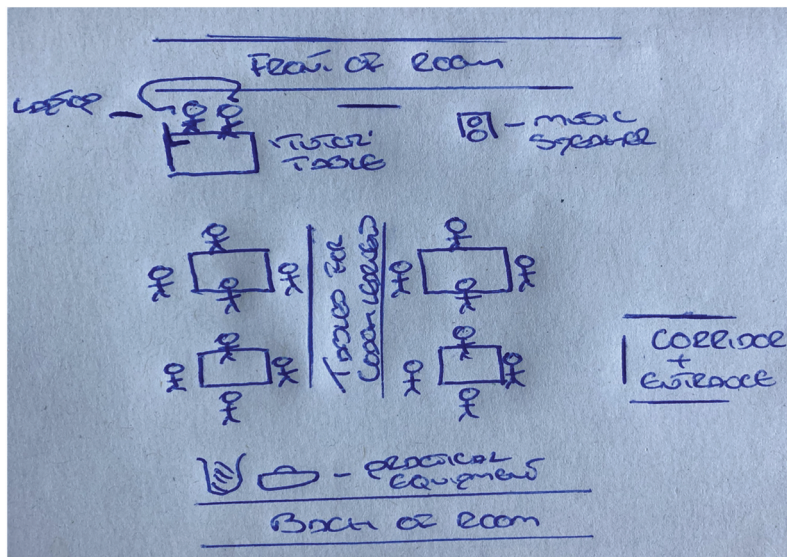 FRONT OF ROOM
TUTOR
TABLE
- MUSIC
SPEAKER
TABLES FOR
CORRIDOR
+
ENTRANCE
- PRACTICAL
EQUIPMENT
BACK OF ROOM